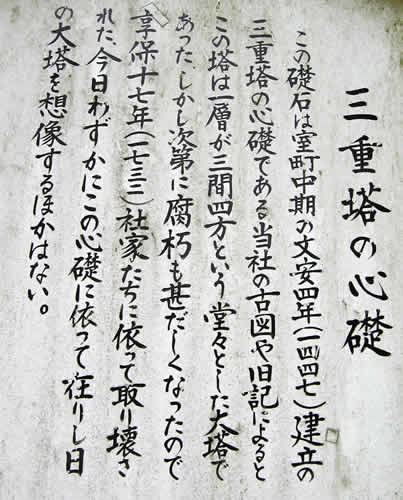 三重塔の心礎
この礎石は室町中期の文安四年(一四四七)建立の
三重塔の心礎である当社の古図や旧記によると
この塔は一層が三間四方という堂々とした大塔で
あった、しかし次第に腐朽も甚だしくなったので
享保十七年(一七三二)社家たちに依って取り壊さ
れた、今日わずかにこの心礎に依って在りし日
の大塔を想像するほかはない。